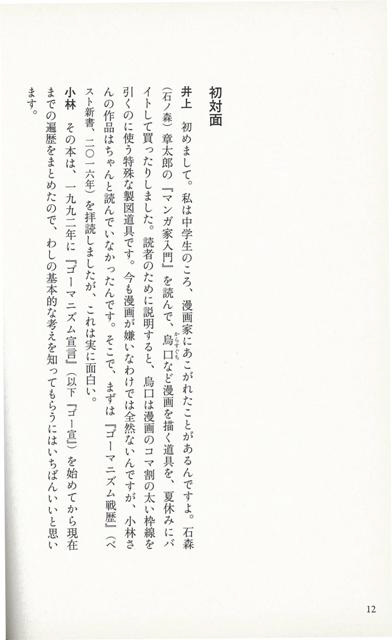 初対面
井上　初めまして。私は中学生のころ、漫画家にあこがれたことがあるんですよ。石森
（石ノ森）章太郎の『マンガ家入門』を読んで、烏口など漫画を描く道具を、夏休みにバ
からすぐち
イトして買ったりしました。読者のために説明すると、烏口は漫画のコマ割の太い枠線を
引くのに使う特殊な製図道具です。今も漫画が嫌いなわけでは全然ないんですが、小林さ
んの作品はちゃんと読んでいなかったんです。そこで、まずは『ゴーマニズム戦歴』（ベ
スト新書、二〇一六年）を拝読しましたが、これは実に面白い。
小林　その本は、一九九二年に『ゴーマニズム宣言』（以下『ゴー宣』）を始めてから現在
までの遍歴をまとめたので、わしの基本的な考えを知ってもらうにはいちばんいいと思い
ます。
12